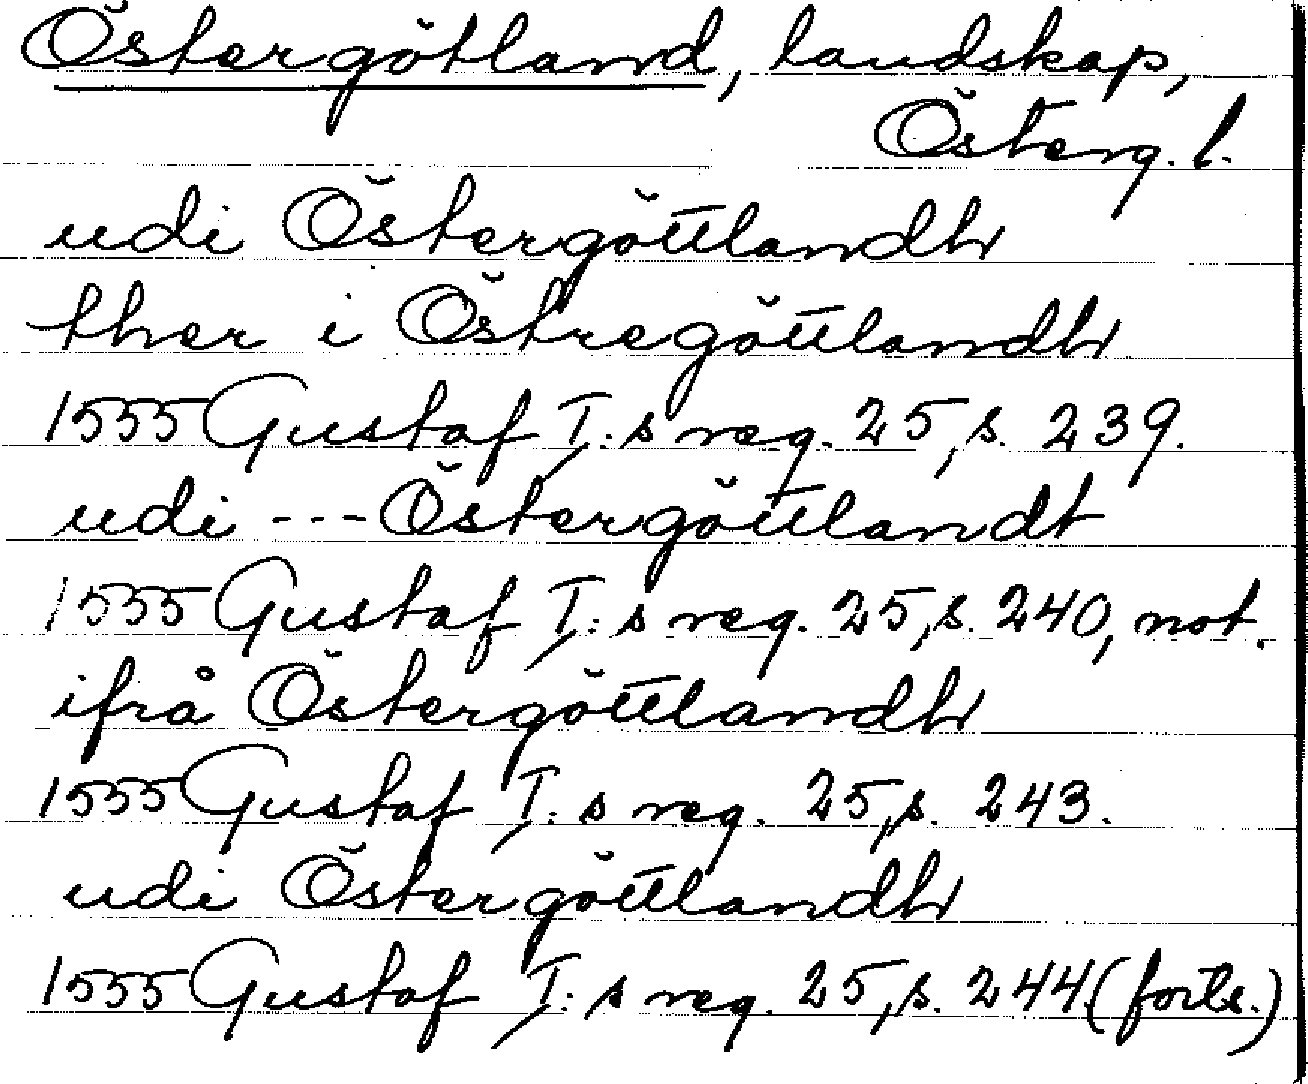 Östergötland, landskap,
Österg. l.
udi Östergöttlandh
ther i Östregöttlandh
1555 Gustaf I:s reg. 25, s. 239.
udi --- Östergöttlandt
1555 Gustaf I:s reg. 25, s. 240, not.
ifrå Östergöttlandh
1555 Gustaf I:s reg. 25, s. 243.
udi Östergöttlandh
1555 Gustaf I:s reg. 25, s. 244. (forts.)